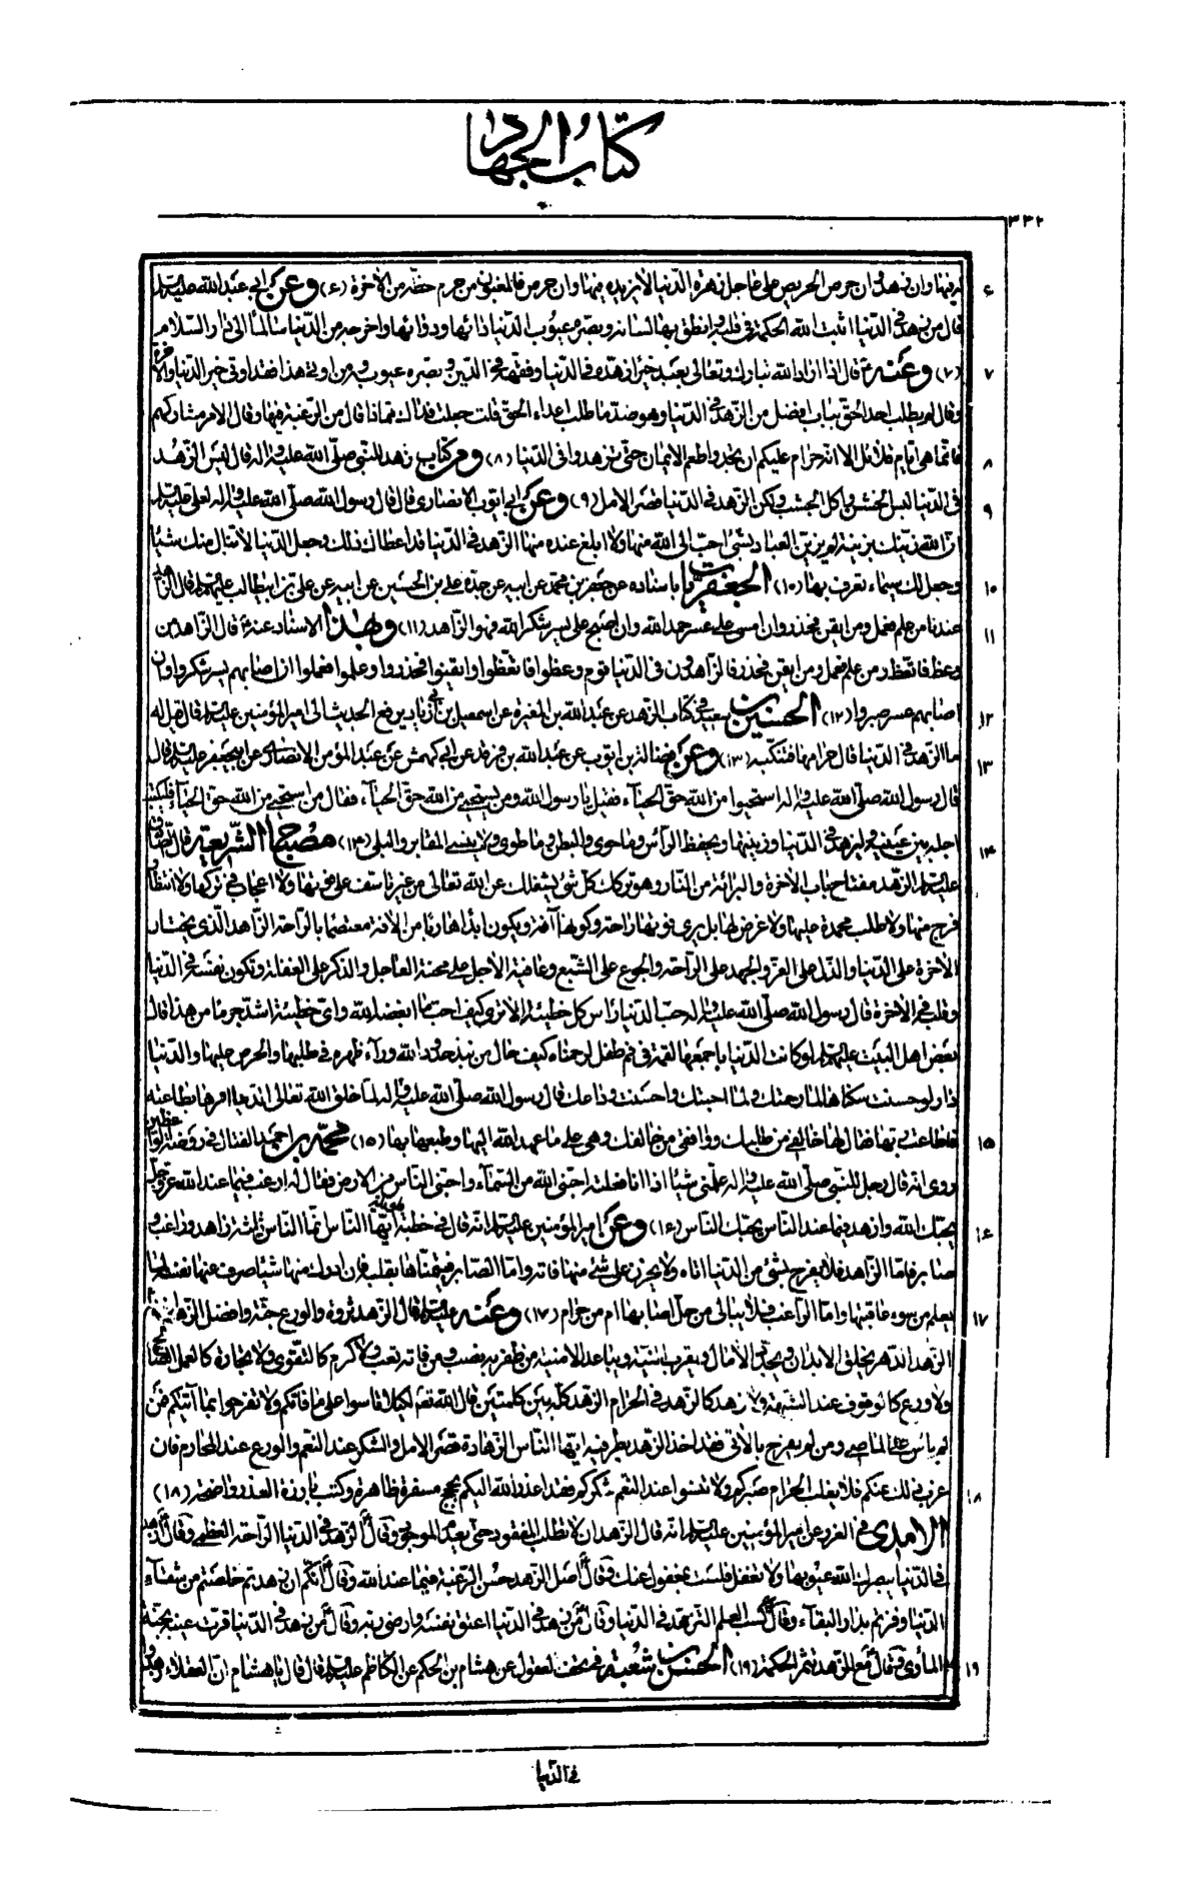 كتاب الجهاد
٣٣٢
فيها وان زهد وان حرص الحريص على عاجل زهرة الدنيا لا يزيده فيها وان حرص فالمغبون من حرم حظه من الآخرة (٦) وعن أبي عبد الله عليه السلام ٦
قال من زهد في الدنيا اثبت الله الحكمة في قلبه وانطق بها لسانه وبصره عيوب الدنيا داءها ودواءها واخرجه من الدنيا سالما الى دار السلام
(٧) وعنه قال اذا اراد الله تبارك وتعالى بعبد خيرا زهده في الدنيا وفقهه في الدين وبصره عيوبه ومن اوتي هذا فقد اوتي خير الدنيا والآخرة ٧
وقال لم يطلب احد الحق بباب افضل من الزهد في الدنيا وهو ضد ما طلب اعداء الحق قلت جعلت فداك مماذا قال من الرغبة فيها وقال الا من صبار كريم
فانما هي ايام قلائل الا انه حرام عليكم ان تجدوا طعم الايمان حتى تزهدوا في الدنيا (٨) ومن كتاب زهد النبي صلى الله عليه وآله قال ليس الزهد ٨
في الدنيا لبس الخشن واكل الجشب ولكن الزهد في الدنيا قصر الامل (٩) وعن أبي ايوب الانصاري قال قال رسول الله صلى الله عليه وآله لعلي عليه السلام ٩
ان الله زينك بزينة لم يزين العباد بشئ احب الى الله منها ولا ابلغ عنده منها الزهد في الدنيا قد اعطاك ذلك وجعل الدنيا لا تنال منك شيئا
وجعل لك سيماء تعرف بها (١٠) الجعفريات باسناده عن جعفر بن محمد عن ابيه عن جده علي بن الحسين عن ابيه عن علي بن ابي طالب عليهم السلام قال الزاهد ١٠
عندنا من علم فعمل ومن ايقن فحذر وان امسى على عسر حمد الله وان اصبح على يسر شكر الله فهو الزاهد (١١) وبهذا الاسناد عنه قال الزاهد من ١١
وعظ فاتعظ ومن علم فعمل ومن ايقن فحذر فالزاهدون في الدنيا قوم وعظوا فاتعظوا وايقنوا فحذروا وعلموا فعملوا ان اصابهم يسر شكروا وان
اصابهم عسر صبروا (١٢) الحسين بن سعيد في كتاب الزهد عن عبد الله بن المغيرة عن اسمعيل بن أبي زياد يرفع الحديث الى امير المؤمنين عليه السلام قال قيل له ١٢
ما الزهد في الدنيا قال حرامها فتنكبه (١٣) وعن فضالة بن ايوب عن عبد الله بن فرقد عن أبي كهمش عن عبد المؤمن الانصاري عن أبي جعفر عليه السلام قال ١٣
قال رسول الله صلى الله عليه وآله استحيوا من الله حق الحياء فقيل يا رسول الله ومن يستحيي من الله حق الحياء فقال من استحيى من الله حق الحياء فليكتب
اجله بين عينيه وليزهد في الدنيا وزينتها ويحفظ الرأس وما حوى والبطن وما طوى ولا ينسى المقابر والبلى (١٤) مصباح الشريعة قال الصادق ١٤
عليه السلام الزهد مفتاح باب الآخرة والبرائة من النار وهو ترك كل شئ يشغلك عن الله تعالى من غير تأسف على فوتها ولا اعجاب في تركها ولا انتظار
فرج منها ولا طلب محمدة عليها ولا عرض لها بل يرى فوتها راحة وكونها آفة ويكون ابدا هاربا من الآفة معتصما بالراحة الزاهد الذي يختار
الآخرة على الدنيا والذل على العز والجهد على الراحة والجوع على الشبع وعافية الآجل على محنة العاجل والذكر على الغفلة وتكون نفسه في الدنيا
وقلبه في الآخرة قال رسول الله صلى الله عليه وآله حب الدنيا رأس كل خطيئة الا ترى كيف احب ما ابغضه الله واي خطيئة اشد جرما من هذا قال
بعض اهل البيت عليهم السلام لو كانت الدنيا باجمعها لقمة في فم طفل لرحمناه كيف حال من نبذ حدود الله وراء ظهره في طلبها والحرص عليها والدنيا
دار لو حسنت سكناها لما رحمتك ولما احبتك واحسنت وداعك قال رسول الله صلى الله عليه وآله لما خلق الله تعالى الدنيا امرها بطاعته
فاطاعت ربها فقال لها خالفي من طلبك ووافقي من خالفك وهي على ما عهد الله اليها وطبعها بها (١٥) محمد بن احمد الفتال في روضة الواعظين ١٥
روى انه قال رجل للنبي صلى الله عليه وآله علمني شيئا اذا انا فعلته احبني الله من السماء واحبني الناس من الارض فقال له ارغب فيما عند الله عز وجل
يحبك الله وازهد فيما عند الناس يحبك الناس (١٦) وعن امير المؤمنين عليه السلام انه قال في خطبة ايها الناس انما الناس ثلثة زاهد وراغب و ١٦
صابر فاما الزاهد فلا يفرح بشئ من الدنيا اتاه ولا يحزن على شئ منها فاته واما الصابر فيتمناها بقلبه فان ادرك منها شيئا صرف عنها نفسه لما
يعلم من سوء عاقبتها واما الراغب فلا يبالي من حل اصابها ام من حرام (١٧) وعنه عليه السلام قال الزهد ثروة والورع جنة وافضل الزهد اخفاء ١٧
الزهد الدهر يخلق الابدان ويجدد الآمال ويقرب المنية ويباعد الامنية من ظفر به نصب ومن فاته تعب ولا كرم كالتقوى ولا تجارة كالعمل الصالح
ولا ورع كالوقوف عند الشبهة ولا زهد كالزهد في الحرام الزهد كله بين كلمتين قال الله تعالى لكيلا تأسوا على ما فاتكم ولا تفرحوا بما آتيكم فمن
لم يأس على الماضي ومن لم يفرح بالآتي فقد اخذ الزهد بطرفيه ايها الناس الزهادة قصر الامل والشكر عند النعم والورع عند المحارم فان
عزب ذلك عنكم فلا يغلب الحرام صبركم ولا تنسوا عند النعم شكركم فقد اعذر الله اليكم بحجج مسفرة ظاهرة وكتب بارزة العذر واضحة (١٨) ١٨
الآمدي في الغرر عن امير المؤمنين عليه السلام انه قال الزهد ان لا تطلب المفقود حتى يعدم الموجود وقال الزهد في الدنيا الراحة العظمى وقال ازهد
في الدنيا يبصرك الله عيوبها ولا تغفل فلست بمغفول عنك وقال اصل الزهد حسن الرغبة فيما عند الله وقال انكم ان زهدتم خلصتم من شقاء
الدنيا وفزتم بدار البقاء وقال كسب العلم التزهد في الدنيا وقال من زهد في الدنيا اعتق نفسه وارضى ربه وقال من زهد في الدنيا قرت عينه بجنة
المأوى وقال مع الزهد تثمر الحكمة (١٩) الحسن بن شعبة في تحف العقول عن هشام بن الحكم عن الكاظم عليه السلام قال قال يا هشام ان العقلاء زهدوا ١٩
في الدنيا